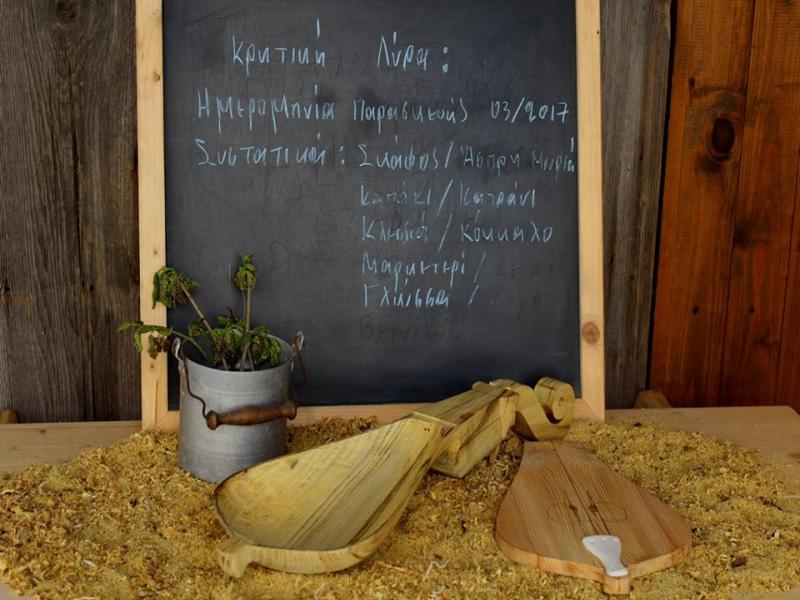 Κρητική Λύρα:
Ημερομηνία Παρασκευής 03/2017
Συστατικά: Σκάφος/Άσπρη Μουριά
Καπάκι/Κατράνι
Κλειδιά/Κόκκαλο
Μαρκετερί/
Γλώσσα/